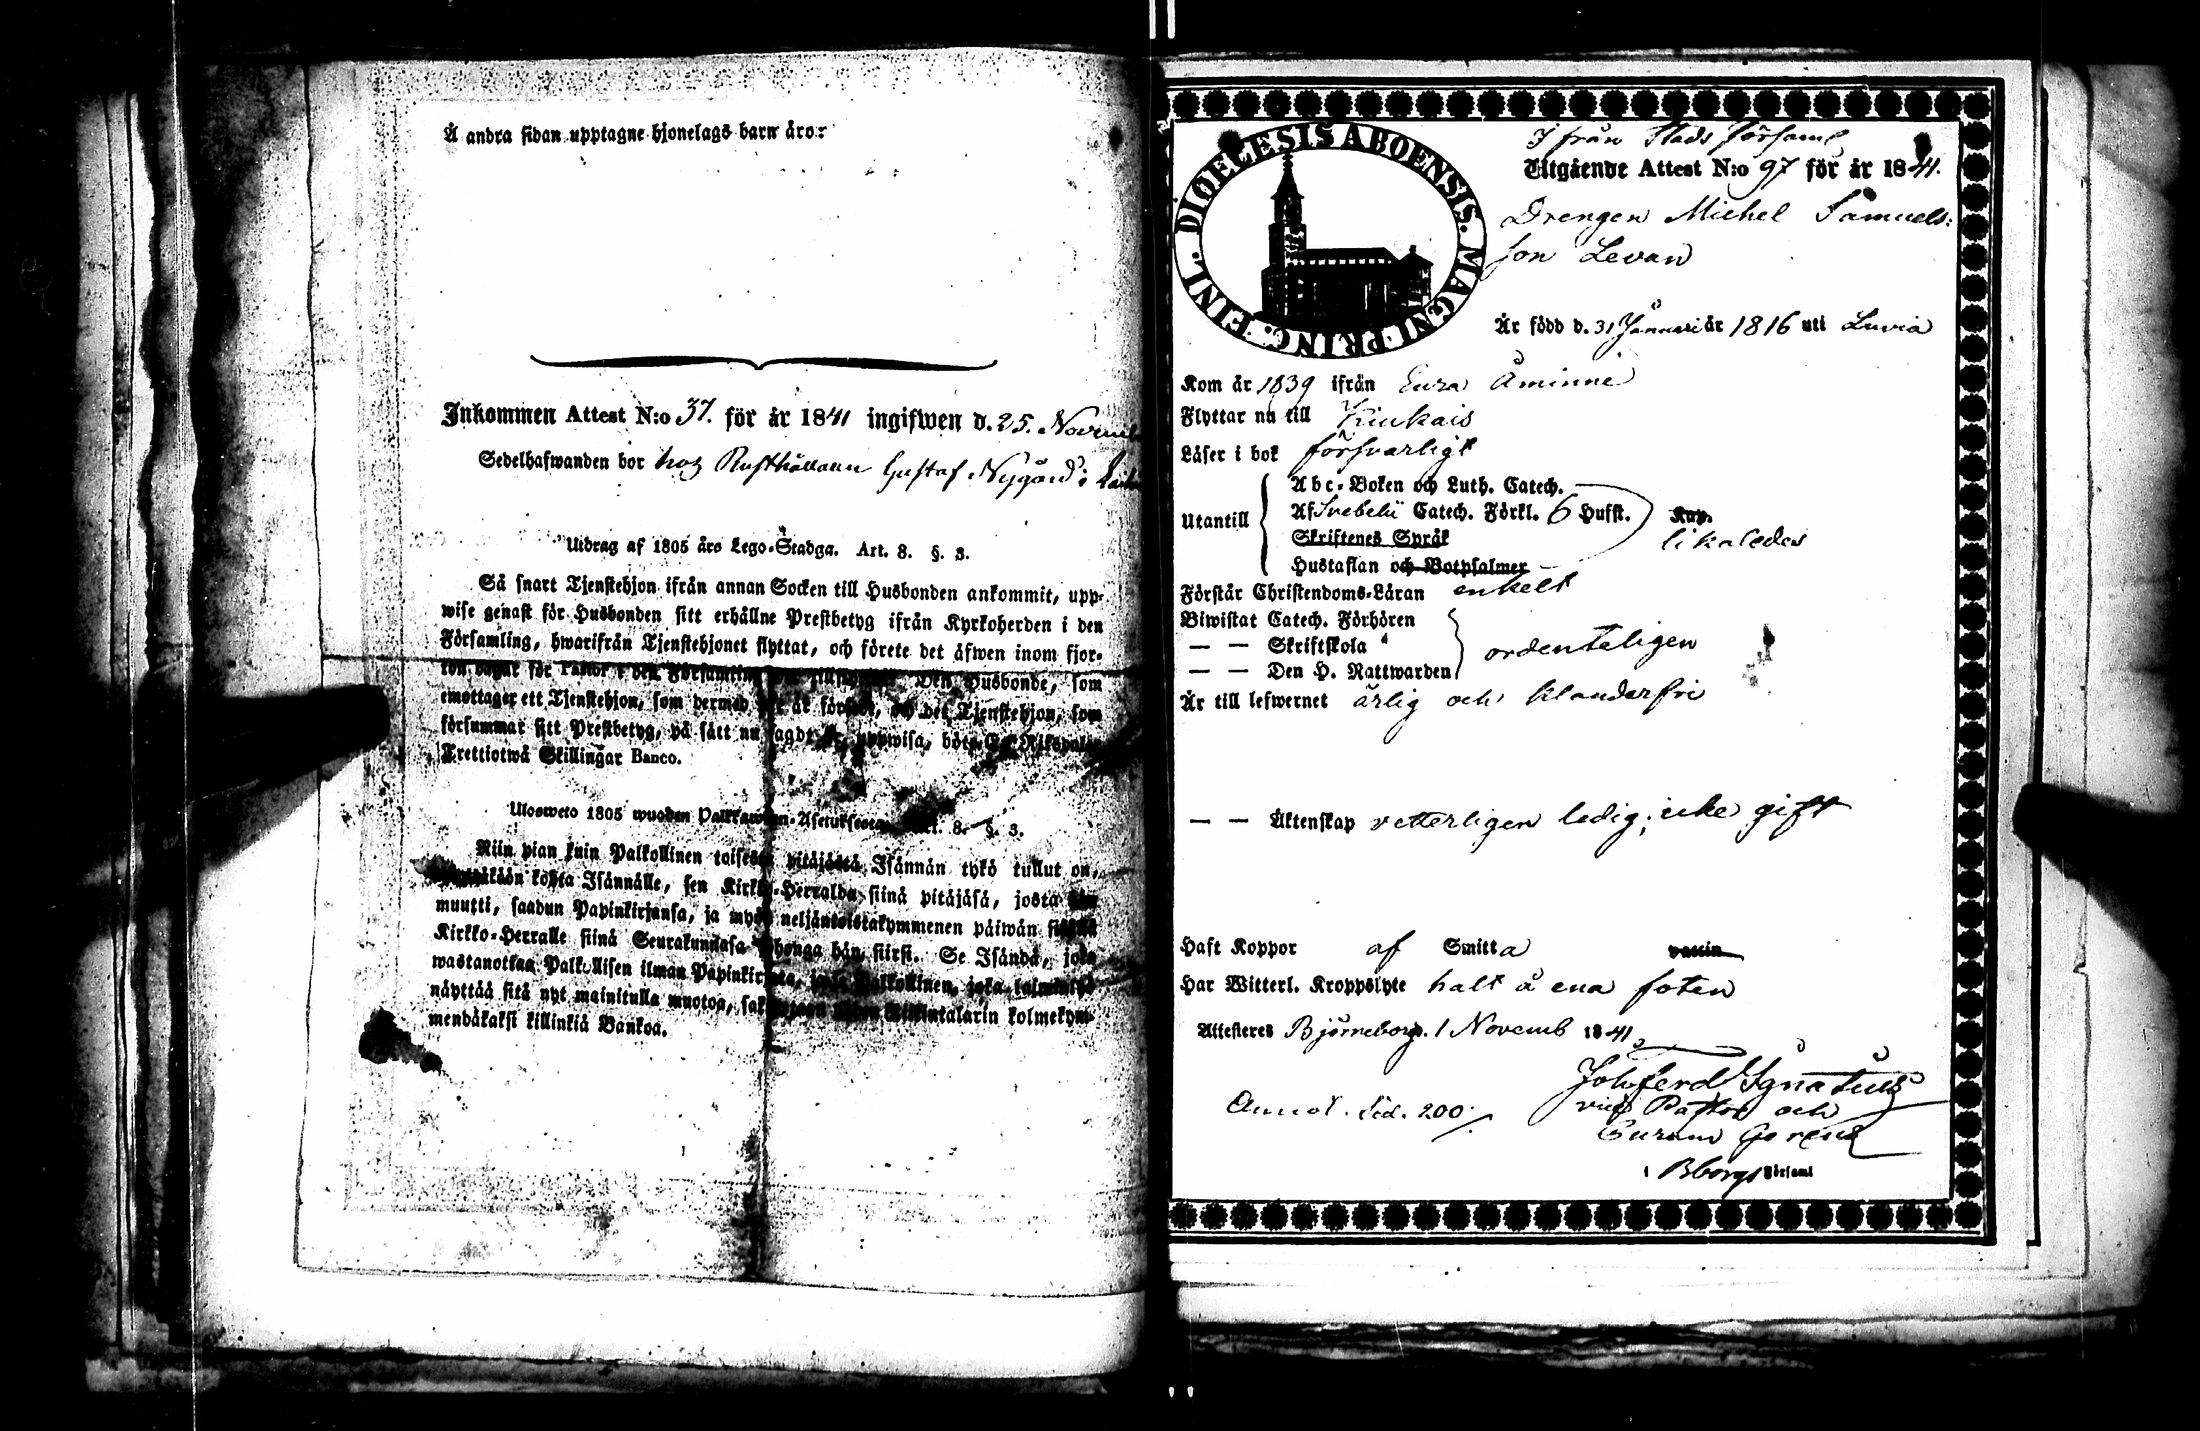 Å andra sidan upptagne hjonelags barn äro:
Inkommen Attest N:o 37. för år 1841 ingifwen d. 25. Novemb
Sedelhafwanden bor hos Rusthållaren Gustaf Nygård i
Utdrag af 1805 års Lego-Stadga. Art. 8. §. 3.
Så snart Tjenstehjon ifrån annan Socken till Husbonden ankommit, upp-
wise genast för Husbonden sitt erhållne Prestbetyg ifrån Kyrkoherden i den
Församling, hwarifrån Tjenstehjonet flyttat, och förete det äfwen inom fjor-
ton dagar för Pastor i den Församling Den Husbonde, som
emottager ett Tjenstehjon, som dermed ej är försedt, och det Tjenstehjon, som
försummar sitt Prestbetyg, på sätt nu sagdt är, uppwisa, böte En Riksdaler
Trettiotwå Skillingar Banco.
Ulosweto 1805 wuoden Palkkawäen-Asetuksesta. Art. 8. §. 3.
Niin pian kuin Palkollinen toisesta pitäjästä Isännän tykö tullut on,
kohta Isännälle, sen Kirkko-Herralda siinä pitäjäsä, josta hän
muutti, saadun Papinkirjansa, ja myös neljäntoistakymmenen päiwän sisällä
Kirkko-Herralle siinä Seurakunnasa hän siirsi. Se Isändä, joka
wastanottaa Palkollisen ilman Papinkirjata, Palkollinen, joka
näyttää sitä nyt mainitulla muotoa, Riikintalarin kolmekym-
mendäkaksi killinkiä Bankoa.
DIOECESIS ABOENSIS. MAGNI PRINC. FINL.
Ifrån Stads Församl
Utgående Attest N:o 97 för år 1841.
Drengen Michel Samuels:
son Levan
Är född d. 31 Januari år 1816 uti Luvia
Kom år 1839 ifrån Eura Åminne
Flyttar nu till Kiukais
Läser i bok försvarligt
Abc-Boken och Luth. Catech.
Utantill Af Svebelii Catech. Förkl. 6 Hufst.
Skriftenes Språk likaledes
Hustaflan och Botpsalmer
Förstår Christendoms-Läran enkelt
Biwistat Catech. Förhören
— — Skriftskola ordenteligen
— — Den H. Nattwarden
Är till lefwernet ärlig och klanderfri
— — Äktenskap vetterligen ledig; icke gift
Haft Koppor af Smitta vaccin
Har Witterl. Kroppslyte halt å ena foten
Attesteres Björneborg. 1 Novemb 1841
Joh Ferd Ignatius
Annot. Sid. 200. vice Pastor och
i Bborgs Församl